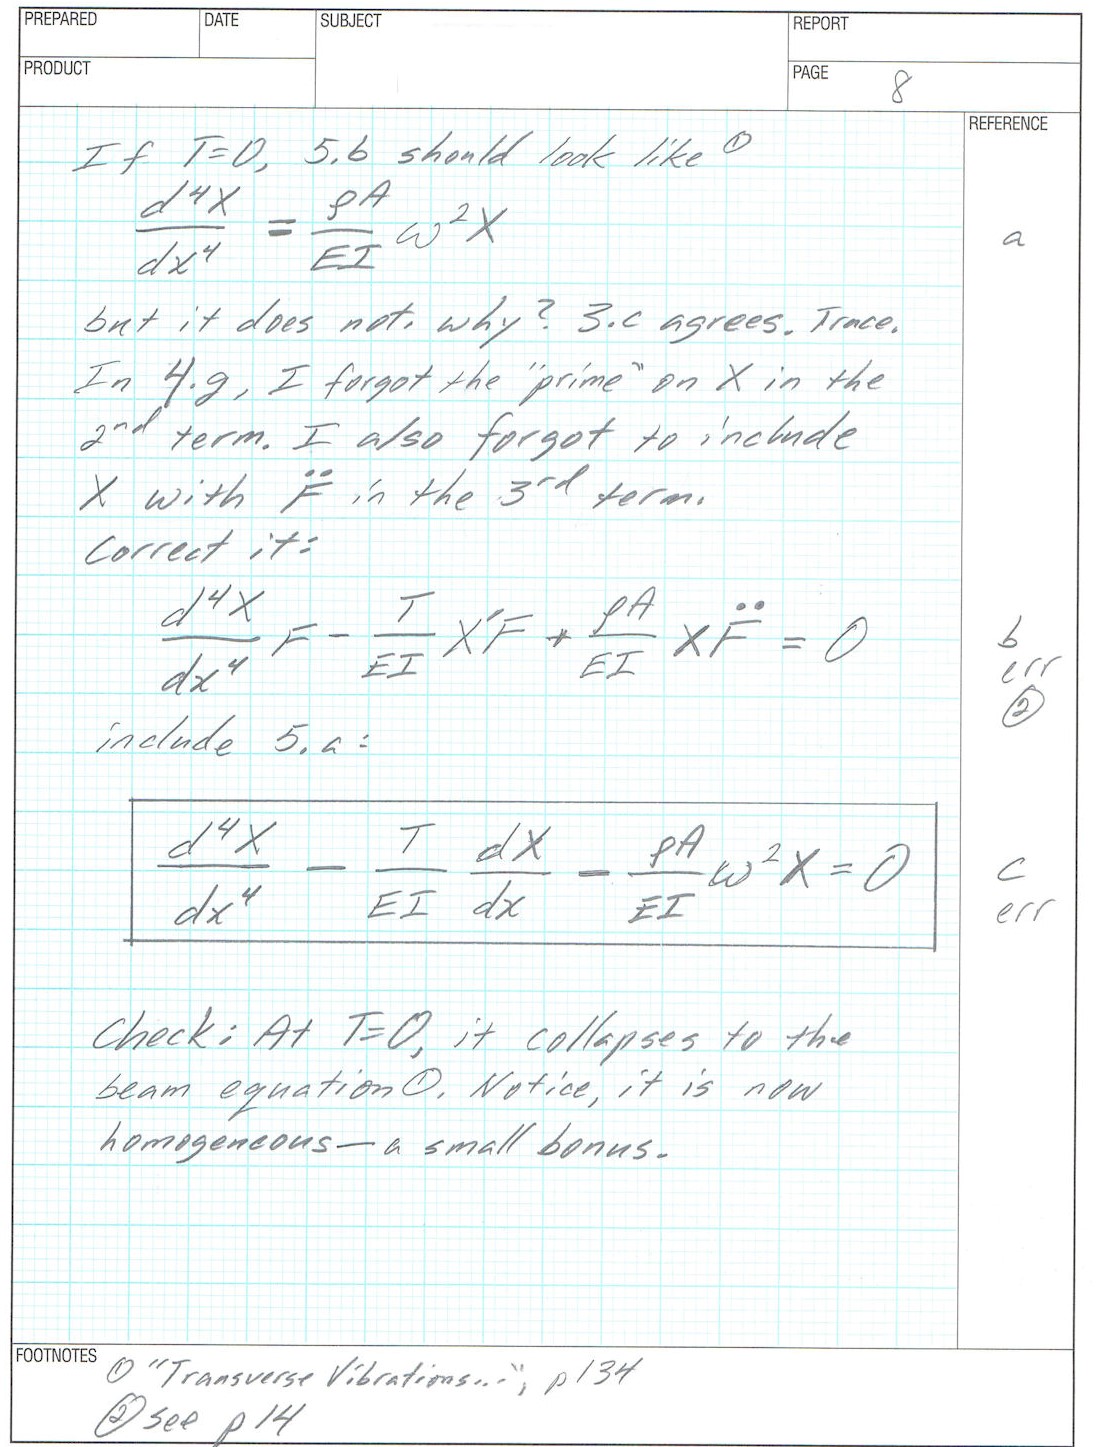 PREPARED DATE SUBJECT REPORT
PRODUCT PAGE 8
REFERENCE
If T=0, 5.b should look like ①
d⁴X/dx⁴ = ρA/EI ω²X a
but it does not. why? 3.c agrees. Trace.
In 4.g, I forgot the "prime" on X in the
2nd term. I also forgot to include
X with F̈ in the 3rd term.
Correct it:
d⁴X/dx⁴ F - T/EI X'F + ρA/EI XF̈ = 0 b
err
②
include 5.a:
d⁴X/dx⁴ - T/EI dX/dx - ρA/EI ω²X = 0 c
err
Check: At T=0, it collapses to the
beam equation①. Notice, it is now
homogeneous—a small bonus.
FOOTNOTES ① "Transverse Vibrations...", p134
② see p14